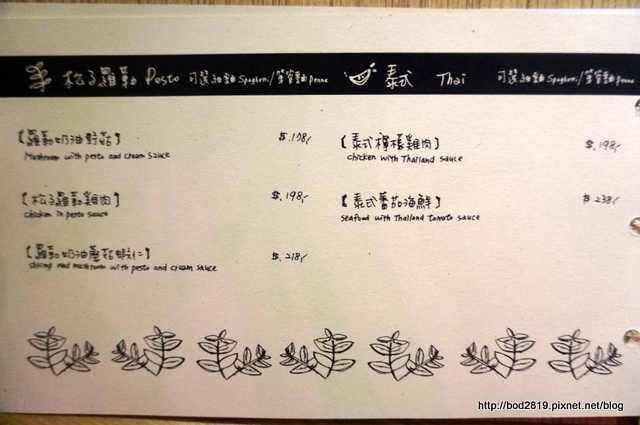 松子羅勒 Pesto 可選油麵 Spaghetti/筆管麵 penne
泰式 Thai 可選油麵 Spaghetti/筆管麵 penne
【羅勒奶油野菇】 $.198,-
Mushroom with pesto and cream sauce
【松子羅勒雞肉】 $.198,-
chicken in pesto sauce
【羅勒奶油蘑菇蝦仁】 $.218,-
shrimp and mushroom with pesto and cream sauce
【泰式檸檬雞肉】 $.198,-
chicken with Thailand sauce
【泰式蕃茄海鮮】 $.238,-
seafood with Thailand tomato sauce
http://bod2819.pixnet.net/blog